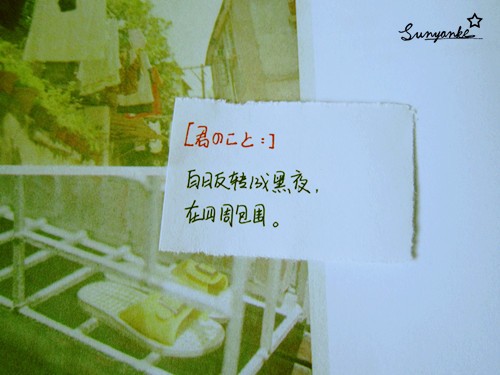 Sunyanke
[君のこと:]
白日反转成黑夜,
在四周包围。